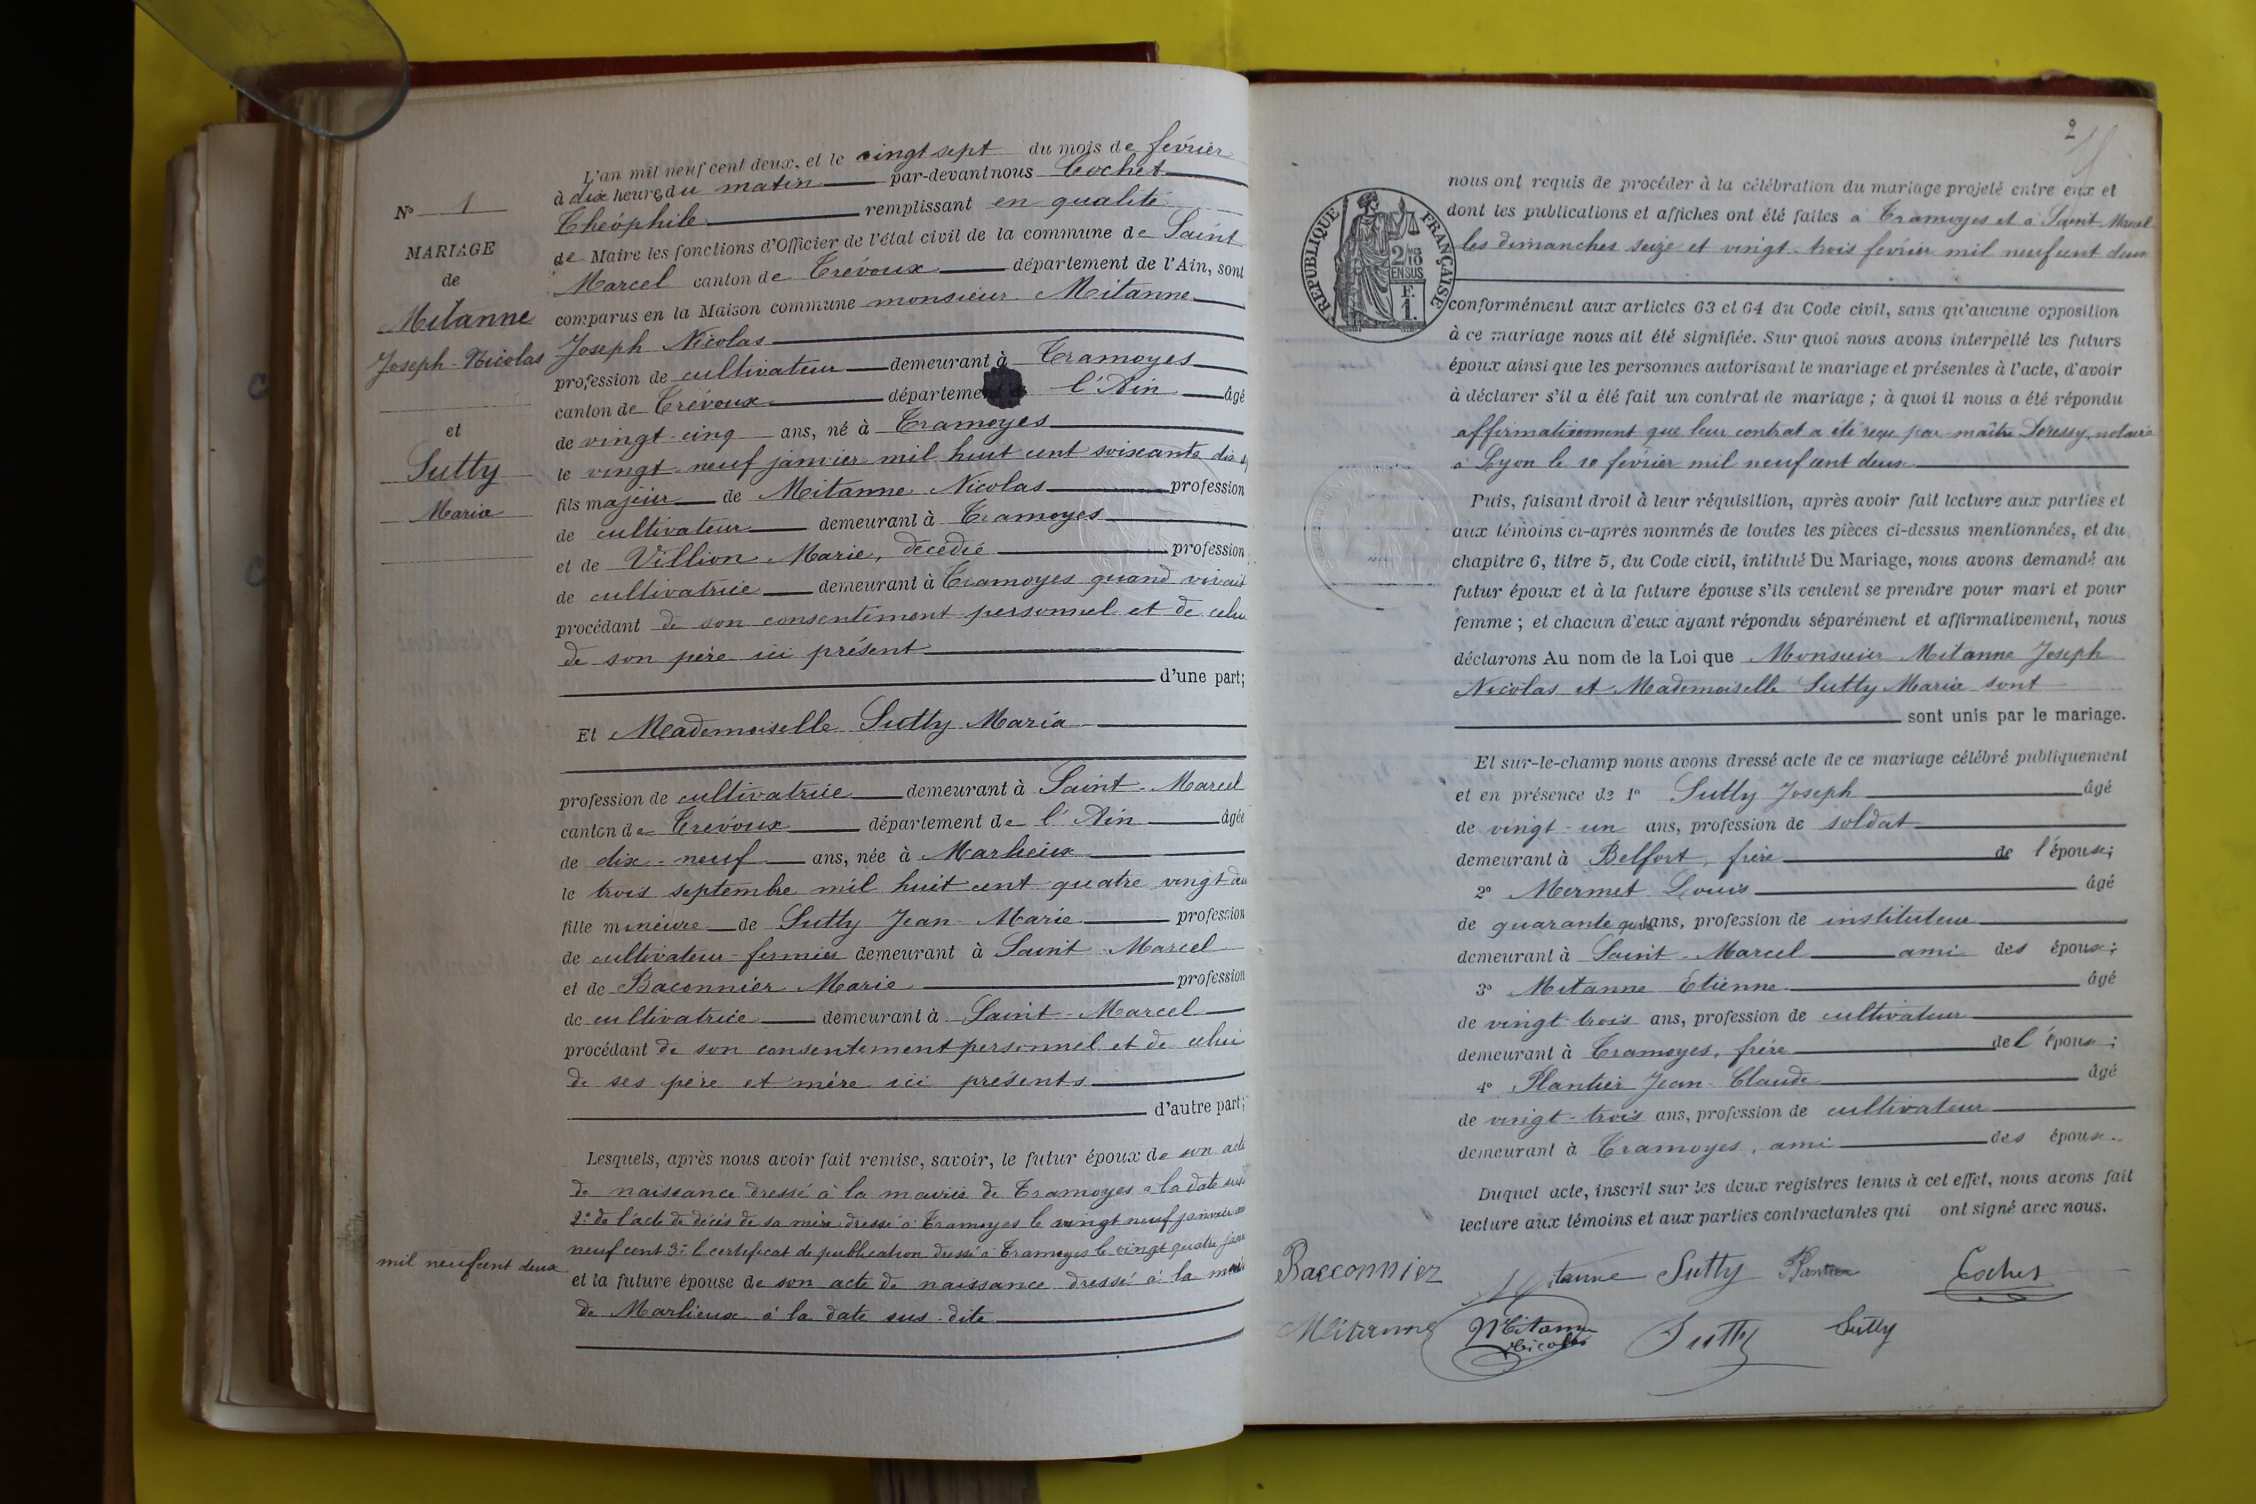 L'an mil neuf cent deux, et le vingt sept du mois de février
à dix heures du matin par-devant nous Cochet
Théophile remplissant en qualité
de Maire les fonctions d'Officier de l'état civil de la commune de Saint
Marcel canton de Trévoux département de l'Ain, sont
comparus en la Maison commune monsieur Mitanne
Joseph Nicolas
profession de cultivateur demeurant à Tramoyes
canton de Trévoux départeme l'Ain âgé
de vingt-cinq ans, né à Tramoyes
le vingt-neuf janvier mil huit cent soixante dix s
fils majeur de Mitanne Nicolas profession
de cultivateur demeurant à Tramoyes
et de Villion Marie, décédée profession
de cultivatrice demeurant à Tramoyes quand vivait
procédant de son consentement personnel et de celui
de son père ici présent
d'une part;
Et Mademoiselle Sutty Maria
profession de cultivatrice demeurant à Saint-Marcel
canton de Trévoux département de l'Ain âgée
de dix-neuf ans, née à Marlieux
le trois septembre mil huit cent quatre vingt deu
fille mineure de Sutty Jean-Marie profession
de cultivateur-fermier demeurant à Saint-Marcel
et de Baconnier Marie profession
de cultivatrice demeurant à Saint-Marcel
procédant de son consentement personnel et de celui
de ses père et mère ici présents
d'autre part;
Lesquels, après nous avoir fait remise, savoir, le futur époux de son acte
de naissance dressé à la mairie de Tramoyes à la date sus
2° de l'acte de décès de sa mère dressé à Tramoyes le vingt neuf janvier
neuf cent 3° le certificat de publication dressé à Tramoyes le vingt quatre
et la future épouse de son acte de naissance dressé à la mairie
de Marlieux à la date sus-dite
N° 1
MARIAGE
de
Mitanne
Joseph-Nicolas
et
Sutty
Maria
mil neuf cent deux
2
RÉPUBLIQUE FRANÇAISE
2/10 EN SUS
F. 1.
nous ont requis de procéder à la célébration du mariage projeté entre eux et
dont les publications et affiches ont été faites à Tramoyes et à Saint Marcel
les dimanches seize et vingt-trois février mil neuf cent deux
conformément aux articles 63 et 64 du Code civil, sans qu'aucune opposition
à ce mariage nous ait été signifiée. Sur quoi nous avons interpellé les futurs
époux ainsi que les personnes autorisant le mariage et présentes à l'acte, d'avoir
à déclarer s'il a été fait un contrat de mariage; à quoi il nous a été répondu
affirmativement que leur contrat a été reçu par maître notaire
à Lyon le 10 février mil neuf cent deux
Puis, faisant droit à leur réquisition, après avoir fait lecture aux parties et
aux témoins ci-après nommés de toutes les pièces ci-dessus mentionnées, et du
chapitre 6, titre 5, du Code civil, intitulé Du Mariage, nous avons demandé au
futur époux et à la future épouse s'ils veulent se prendre pour mari et pour
femme; et chacun d'eux ayant répondu séparément et affirmativement, nous
déclarons Au nom de la Loi que Monsieur Mitanne Joseph
Nicolas et Mademoiselle Sutty Maria sont
sont unis par le mariage.
Et sur-le-champ nous avons dressé acte de ce mariage célébré publiquement
et en présence de 1° Sutty Joseph âgé
de vingt-un ans, profession de soldat
demeurant à Belfort, frère de l'épouse;
2° Mermet Louis âgé
de quarante ans, profession de instituteur
demeurant à Saint-Marcel ami des époux;
3° Mitanne Etienne âgé
de vingt-trois ans, profession de cultivateur
demeurant à Tramoyes, frère de l'époux;
4° Plantier Jean-Claude âgé
de vingt-trois ans, profession de cultivateur
demeurant à Tramoyes, ami des époux.
Duquel acte, inscrit sur les deux registres tenus à cet effet, nous avons fait
lecture aux témoins et aux parties contractantes qui ont signé avec nous.
Bacconnier Mitanne Sutty Plantier Cochet
Mitanne Mitanne Nicolas Sutty Sutty